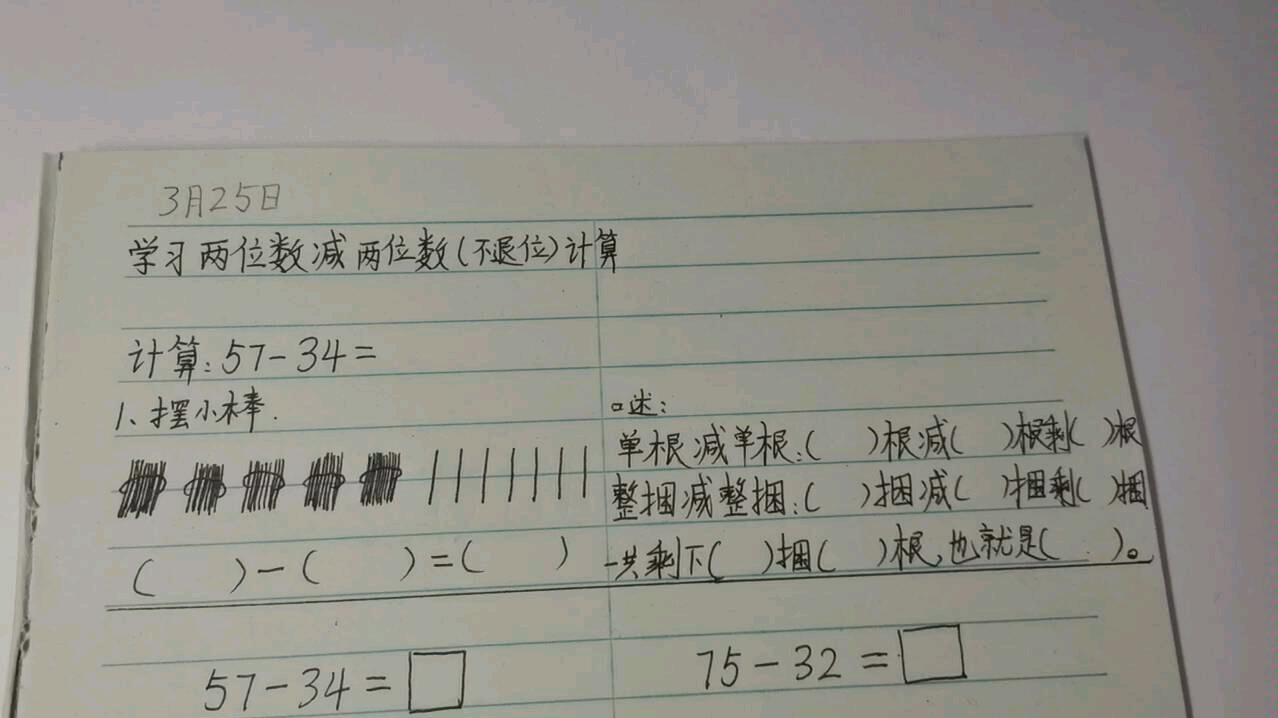 3月25日
学习两位数减两位数(不退位)计算
计算:57-34=
1、摆小棒.
口述:
单根减单根:( )根减( )根剩( )根
整捆减整捆:( )捆减( )捆剩( )捆
一共剩下( )捆( )根,也就是( )。
( )-( )=( )
57-34=□
75-32=□